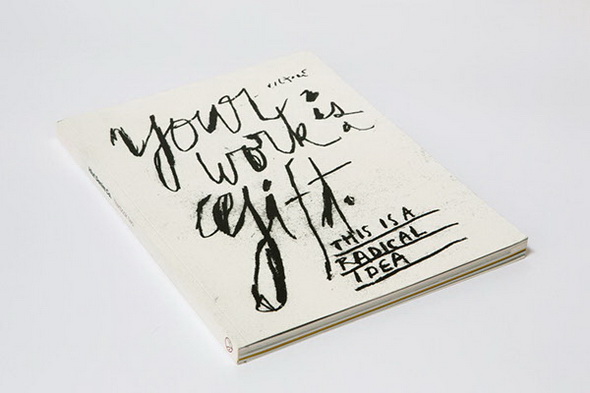 your
work is a
gift.
THIS IS A
RADICAL
IDEA